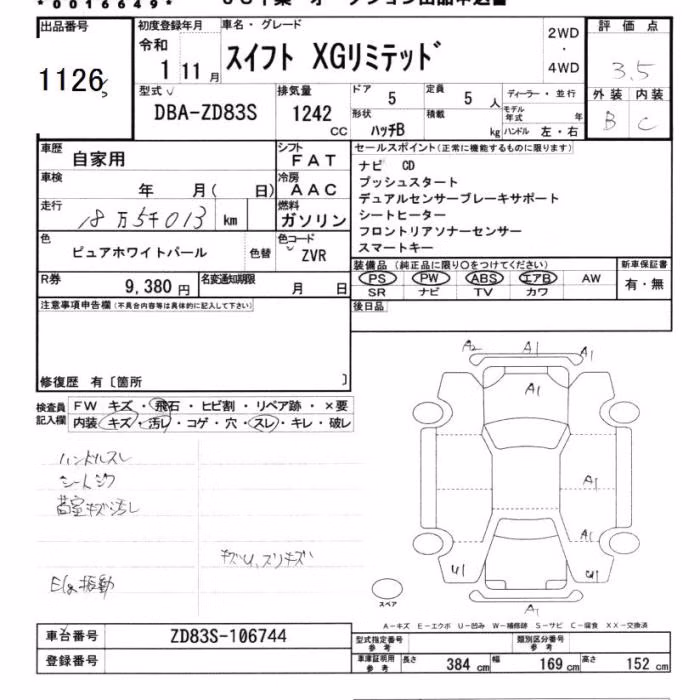 *0016649*
出品番号
1126
初度登録年月
令和
1 11月
車名・グレード
スイフト XGリミテッド
2WD
・
4WD
評価点
3.5
外装 内装
B C
型式
DBA-ZD83S
排気量
1242
CC
ドア
5
定員
5 人
形状
ハッチB
積載
kg
ディーラー・並行
モデル年式 年
ハンドル 左・右
車歴
自家用
シフト
FAT
車検
年 月( 日)
冷房
AAC
走行
18万5千013 km
燃料
ガソリン
色
ピュアホワイトパール
色替
色コード
ZVR
R券
9,380 円
名変通知期限
月 日
セールスポイント(正常に機能するものに限ります)
ナビ CD
プッシュスタート
デュアルセンサーブレーキサポート
シートヒーター
フロントリアソナーセンサー
スマートキー
装備品 (純正品に限り○をつけてください)
PS PW ABS エアB AW
SR ナビ TV カワ
新車保証書
有・無
後日品
注意事項申告欄(不具合内容等は具体的に記入して下さい)
修復歴 有〔箇所 〕
検査員
記入欄
FW キズ・飛石・ヒビ割・リペア跡・×要
内装 キズ・汚レ・コゲ・穴・スレ・キレ・破レ
ハンドルスレ
シートシワ
荷室キズ汚レ
キズU、スリキズ
Eg振動
A2 A1 A1
A1
A1
A1
U1 U1
A1
スペア
A-キズ E-エクボ U-凹み W-補修跡 S-サビ C-腐食 XX-交換済
車台番号
ZD83S-106744
登録番号
型式指定番号
参考
類別区分番号
参考
車庫証明用
参考
長さ 384 cm
幅 169 cm
高さ 152 cm